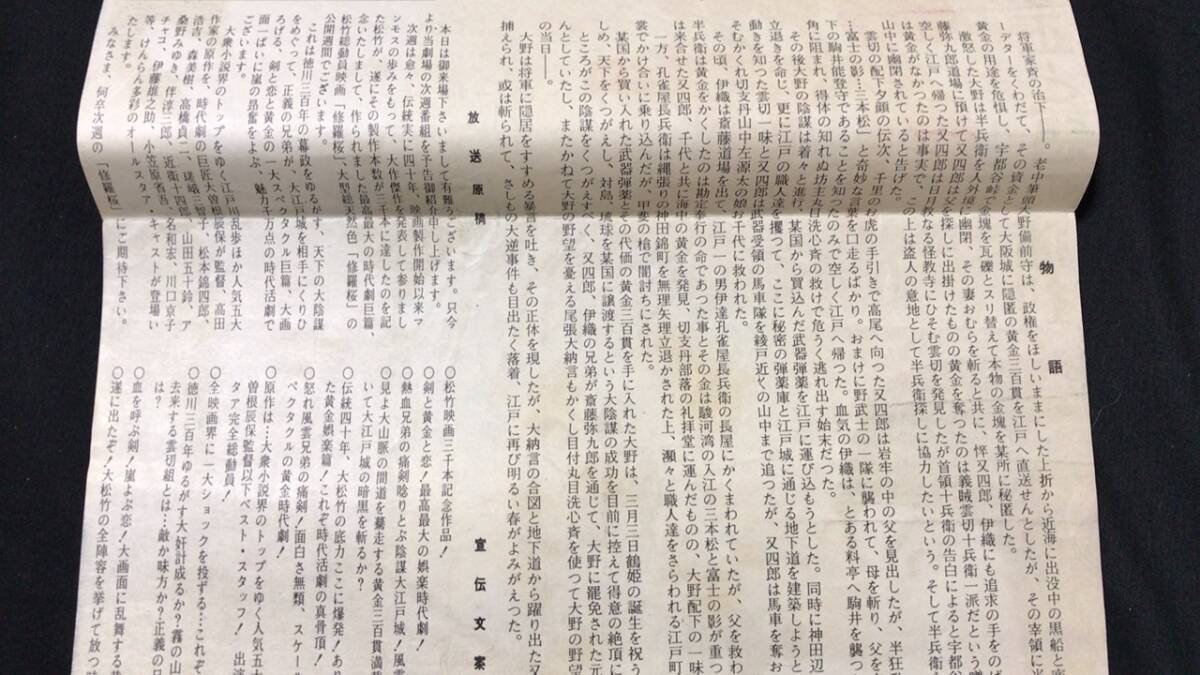 物語
将軍家斉の治下――。老中筆頭大野備前守は、政権をほしいままにした上折から近海に出没中の黒船と密
ーデターをくわだて、その資金として大阪城に隠匿の黄金三百貫を江戸へ直送せんとしたが、その宰領に当
黄金の用途を危惧し、宇都谷峠で金塊を瓦礫とスリ替えて本物の金塊を某所に秘匿した。
激怒した大野は半兵衛を人外境に幽閉、その妻おむらを斬ると共に、悴又四郎、伊織にも追求の手をのば
藤弥九郎道場に預けて又四郎は父探しに出掛けたものの黄金を奪ったのは義賊雲切十兵衛一派だという噂
空しく江戸へ帰った又四郎は日月教なる怪教寺にひそむ雲切を発見したが首領十兵衛の告白によると宇都谷
は黄金がなかったのは事実で、この上は盗人の意地として半兵衛探しに協力したいという。そして半兵衛
山中に幽閉されていると告げた。
雲切の配下、夕顔の伝次、千里のお虎の手引きで高尾へ向った又四郎は岩牢の中の父を見出したが、半狂
…富士の影…三本松」と奇妙な言葉を口走るばかり。おまけに野武士の一隊に襲われて、母を斬り、父を
下の駒井能登守であることを知ったのみで空しく江戸へ帰った。血気の伊織は、とある料亭へ駒井を襲っ
角に阻まれ、得体の知れぬ坊主丸目洗心斉の救けで危うく逃れ出す始末だった。
その後大野の陰謀は着々と進行、某国から買込んだ武器弾薬を江戸に運び込もうとした。同時に神田辺
立退きを命じ、更に江戸の職人達を攫って、ここに秘密の弾薬庫と江戸城に通じる地下道を建築しようと
動きを知った雲切一味と又四郎は武器受領の馬車隊を綾戸近くの山中まで追つたが、又四郎は馬車を奪お
そむかくれ切支丹山中左源太の娘お千代に救われた。
その頃、伊織は斎藤道場を出て、江戸一の男伊達孔雀屋長兵衛の長屋にかくまわれていたが、父を救わ
半兵衛は黄金をかくしたのは勘定奉行の命であった事とその金は駿河湾の入江の三本松と富士の影が重つ
は来合せた又四郎、千代と共に海中の黄金を発見、切支丹部落の礼拝堂に運んだものの、大野配下の一味
一方、孔雀屋長兵衛は縄張りの神田錦町を無理矢理立退かされた上、瀬々と職人達をさらわれる江戸町
裳でかけ合いに乗り込んだが、甲斐の槍で闇討ちにされた。
某国から買い入れた武器弾薬とその代価の黄金三百貫を手に入れた大野は、三月三日鶴姫の誕生を祝う
しめ、天下をくつがえし、対島、琉球を某国に譲渡するという大陰謀の成功を目前に控えて得意の絶頂に
ところがこの陰謀をくつがえすべく、又四郎、伊織の兄弟が斎藤弥九郎を通じて、大野に罷免された元
んとしていたし、またかねて大野の野望を憂える尾張大納言もかくし目付丸目洗心斉を使つて大野の野望
の当日――。
大野は将軍に隠居をすすめる暴言を吐き、その正体を現したが、大納言の合図と地下道から躍り出た又
捕えられ、或は斬られて、さしもの大逆事件も目出たく落着、江戸に再び明るい春がよみがえつた。
放送原稿
本日は御来場下さいまして有難うございます。只今
より当劇場の次週番組を予告御紹介申し上げます。
次週は愈々、伝統実に四十年、映画製作開始以来マ
ンモスの歩みをもって、大作傑作を発表して参りまし
た松竹が、遂にその製作本数が三千本に達したのを記
念いたしまして、作られました最高最大の時代劇巨篇、
松竹総動員映画「修羅桜」、大型総天然色「修羅桜」の
公開週間でございます。
これは徳川三百年の幕政をゆるがす、天下の大陰謀
をめぐって、正義の兄弟が、大江戸城を相手にくりひ
ろげる、剣と恋と黄金の一大スペクタクル巨篇、大画
面一ぱいに嵐の昂奮をよぶ、魅力千万点の時代活劇で
ございます。
大衆小説界のトップをゆく江戸川乱歩ほか人気五大
作家の原作を、時代劇の巨匠大曽根辰保が監督、高田
浩吉、森美樹、高橋貞二、瑳峨三智子、松本錦四郎、
桑野みゆき、伴淳三郎、近衛十四郎、山田五十鈴、ア
チャコ、伊藤雄之助、小笠原省吾、名和宏、川口京子
等、けんらん多彩のオールスタア・キャストが登場い
たします。
みなさま、何卒次週の「修羅桜」にご期待下さい。
宣伝文案
○松竹映画三千本記念作品！
○剣と黄金と恋！最高最大の娯楽時代劇！
○熱血兄弟の痛剣唸りとぶ陰謀大江戸城！風雲
○見よ大山脈の間道を驀走する黄金三百貫満
いて大江戸城の暗黒を斬るか？
○伝統四十年、大松竹の底力ここに爆発！あり
た黄金娯楽篇！これぞ時代活劇の真骨頂！
○怒れ風雲兄弟の痛剣！面白さ無類、スケール
ペクタクルの黄金時代劇！
○原作は…大衆小説界のトップをゆく人気五大
曽根辰保監督以下ベスト・スタッフ！出演
タア完全総動員！
○全映画界に一大ショックを投ずる…これぞ
○徳川三百年ゆるがす大奸計成るか？霧の山
去来する雲切組とは…敵か味方か？正義の兄
は？
○血を呼ぶ剣！嵐よぶ恋！大画面に乱舞する
○遂に出たぞ！大松竹の全陣容を挙げて放つ時